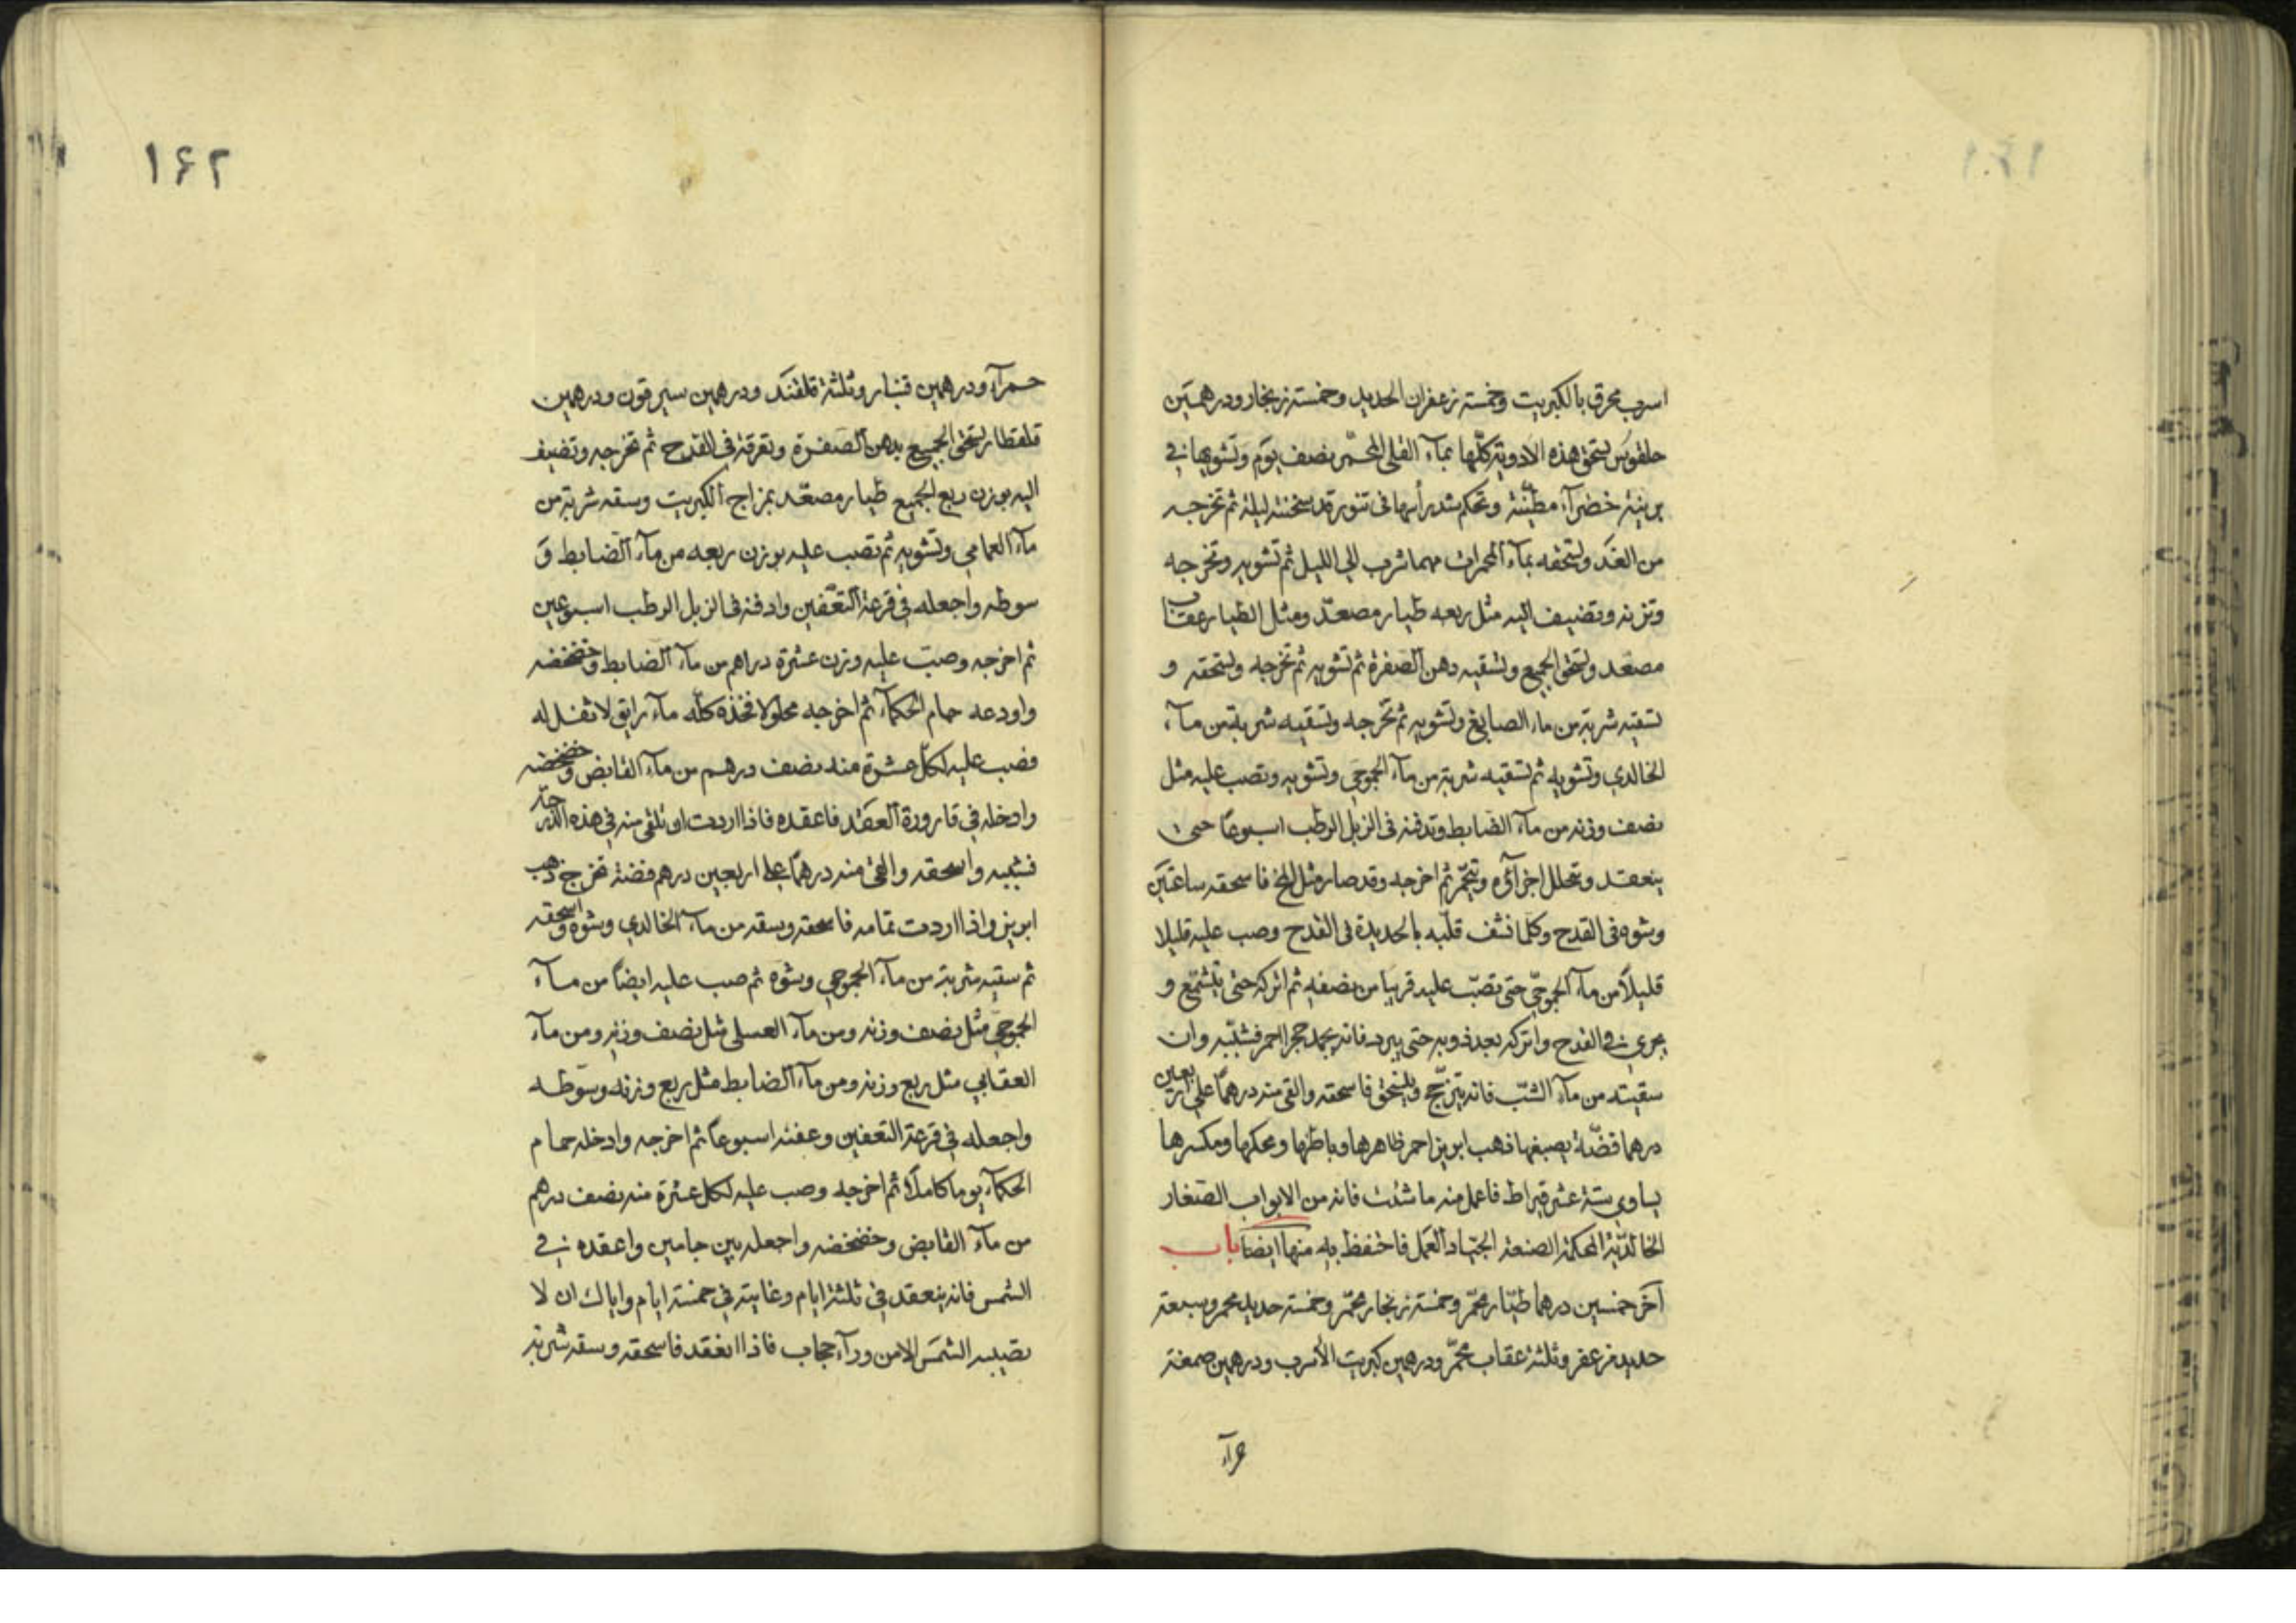 اسرب محرق بالكبريت وخمسة زعفران الحديد وخمسة زنجار ودرهمين
حلقوس تسحق هذه الادوية كلّها بمآء القلي المحّمر نصف يوم وتشويها في
برنية خضرآء مطيّنة وتحكم شد رأسها فى تنور قد سخنته ليلة ثم تخرجه
من الغد وتسحقه بمآء المحمرات مهما شرب الى الليل ثم تشويه وتخرجه
وتزنه وتضيف اليه مثل ربعه طيار مصعّد ومثل الطيار عقاب
مصعد وتسحق الجميع وتسقيه دهن الصفرة ثم تشويه ثم تخرجه وتسحقه و
تسقيه شربة من ماء الصابغ وتشويه ثم تخرجه وتسقيه شربة من مآء
الخالدي وتشويه ثم تسقيه شربة من مآء الجموجي وتشويه وتصب عليه مثل
نصف وزنه من مآء الضابط وتدفنه فى الزبل الرطب اسبوعًا حتى
ينعقد وتتحلل اجزآؤه وتتخمّر ثم اخرجه وقد صار مثل المخ فاسحقه ساعتين
وشوه فى القدح وكلما نشف قلّبه بالحديدة فى القدح وصب عليه قليلا
قليلاً من مآء الجموجّي حتى تصبّ عليه قريبا من نصفه ثم اتركه حتى يتشمّع و
يجري فى القدح واتركه بعد ذوبه حتى يبرد فانه يجمد حجرا احمر فشبّبه وان
سقيته من مآء الشبّ فانه يتزجّج وينسحق فاسحقه والقى منه درهمًا على اربعين
درهما فضّة يصبغها ذهب ابريز احمر ظاهرها وباطنها ومحكها ومكسرها
يساوي ستة عشر قيراط فاعمل منه ما شئت فانه من الابواب الصغار
الخالديّة المحكمة الصنعة الجياد العمل فاحتفظ به منها ايضا باب
آخر خمسين درهما طيّار محمّر وخمسة زنجار محمّر وخمسة حديد محمر وسبعة
حديد مزعفر وثلثة عقاب محمّر ودرهمين كبريت الأسرب ودرهمين صمغة
حمرآء
١٦٢
حمرآء ودرهمين قنبار وثلثة قلقند ودرهمين سيرقون ودرهمين
قلقطار تسحق الجميع بدهن الصفرة وتغرقه فى القدح ثم تخرجه وتضيف
اليه بوزن ربع الجميع طيار مصعّد بمزاج الكبريت وسقه شربة من
مآء العمامي وتشويه ثم تصب عليه بوزن ربعه من مآء الضابط وَ
سوطه واجعله في قرعة التعّفين وادفنه فى الزبل الرطب اسبوعين
ثم اخرجه وصبّ عليه وزن عشرة دراهم من مآء الضابط وخضخضه
واودعه حمام الحكمآء ثم اخرجه محلولا فتخذه كلّه مآء رايق لا ثفل له
فصب عليه لكل عشرة منه نصف درهم من مآء القابض وخضخضه
وادخله في قارورة العقد فاعقده فاذا اردت ان تلقى منه في هذه الدرجة
فشببه واسحقه والقى منه درهمًا على اربعين درهم فضة تخرج ذهب
ابريز واذا اردت تمامه فاسحقه وسقه من مآء الخالدي وشوه واسحقه
ثم سقيه شربة من مآء الجموجي وشوه ثم صب عليه ايضاً من مآء
الجموجي مثل نصف وزنه ومن مآء العسلى مثل نصف وزنه ومن مآء
العقابي مثل ربع وزنه ومن مآء الضابط مثل ربع وزنه وسوّطه
واجعله في قرعة التعفين وعفنه اسبوعاً ثم اخرجه وادخله حمام
الحكمآء يوما كاملا ثم اخرجه وصب عليه لكل عشرة منه نصف درهم
من مآء القابض وخضخضه واجعله بين جامين واعقده في
الشمس فانه ينعقد في ثلثة ايام وغايته في خمسة ايام واياك ان لا
تصيبه الشمس الا من ورآء حجاب فاذا انعقد فاسحقه وسقه شربة